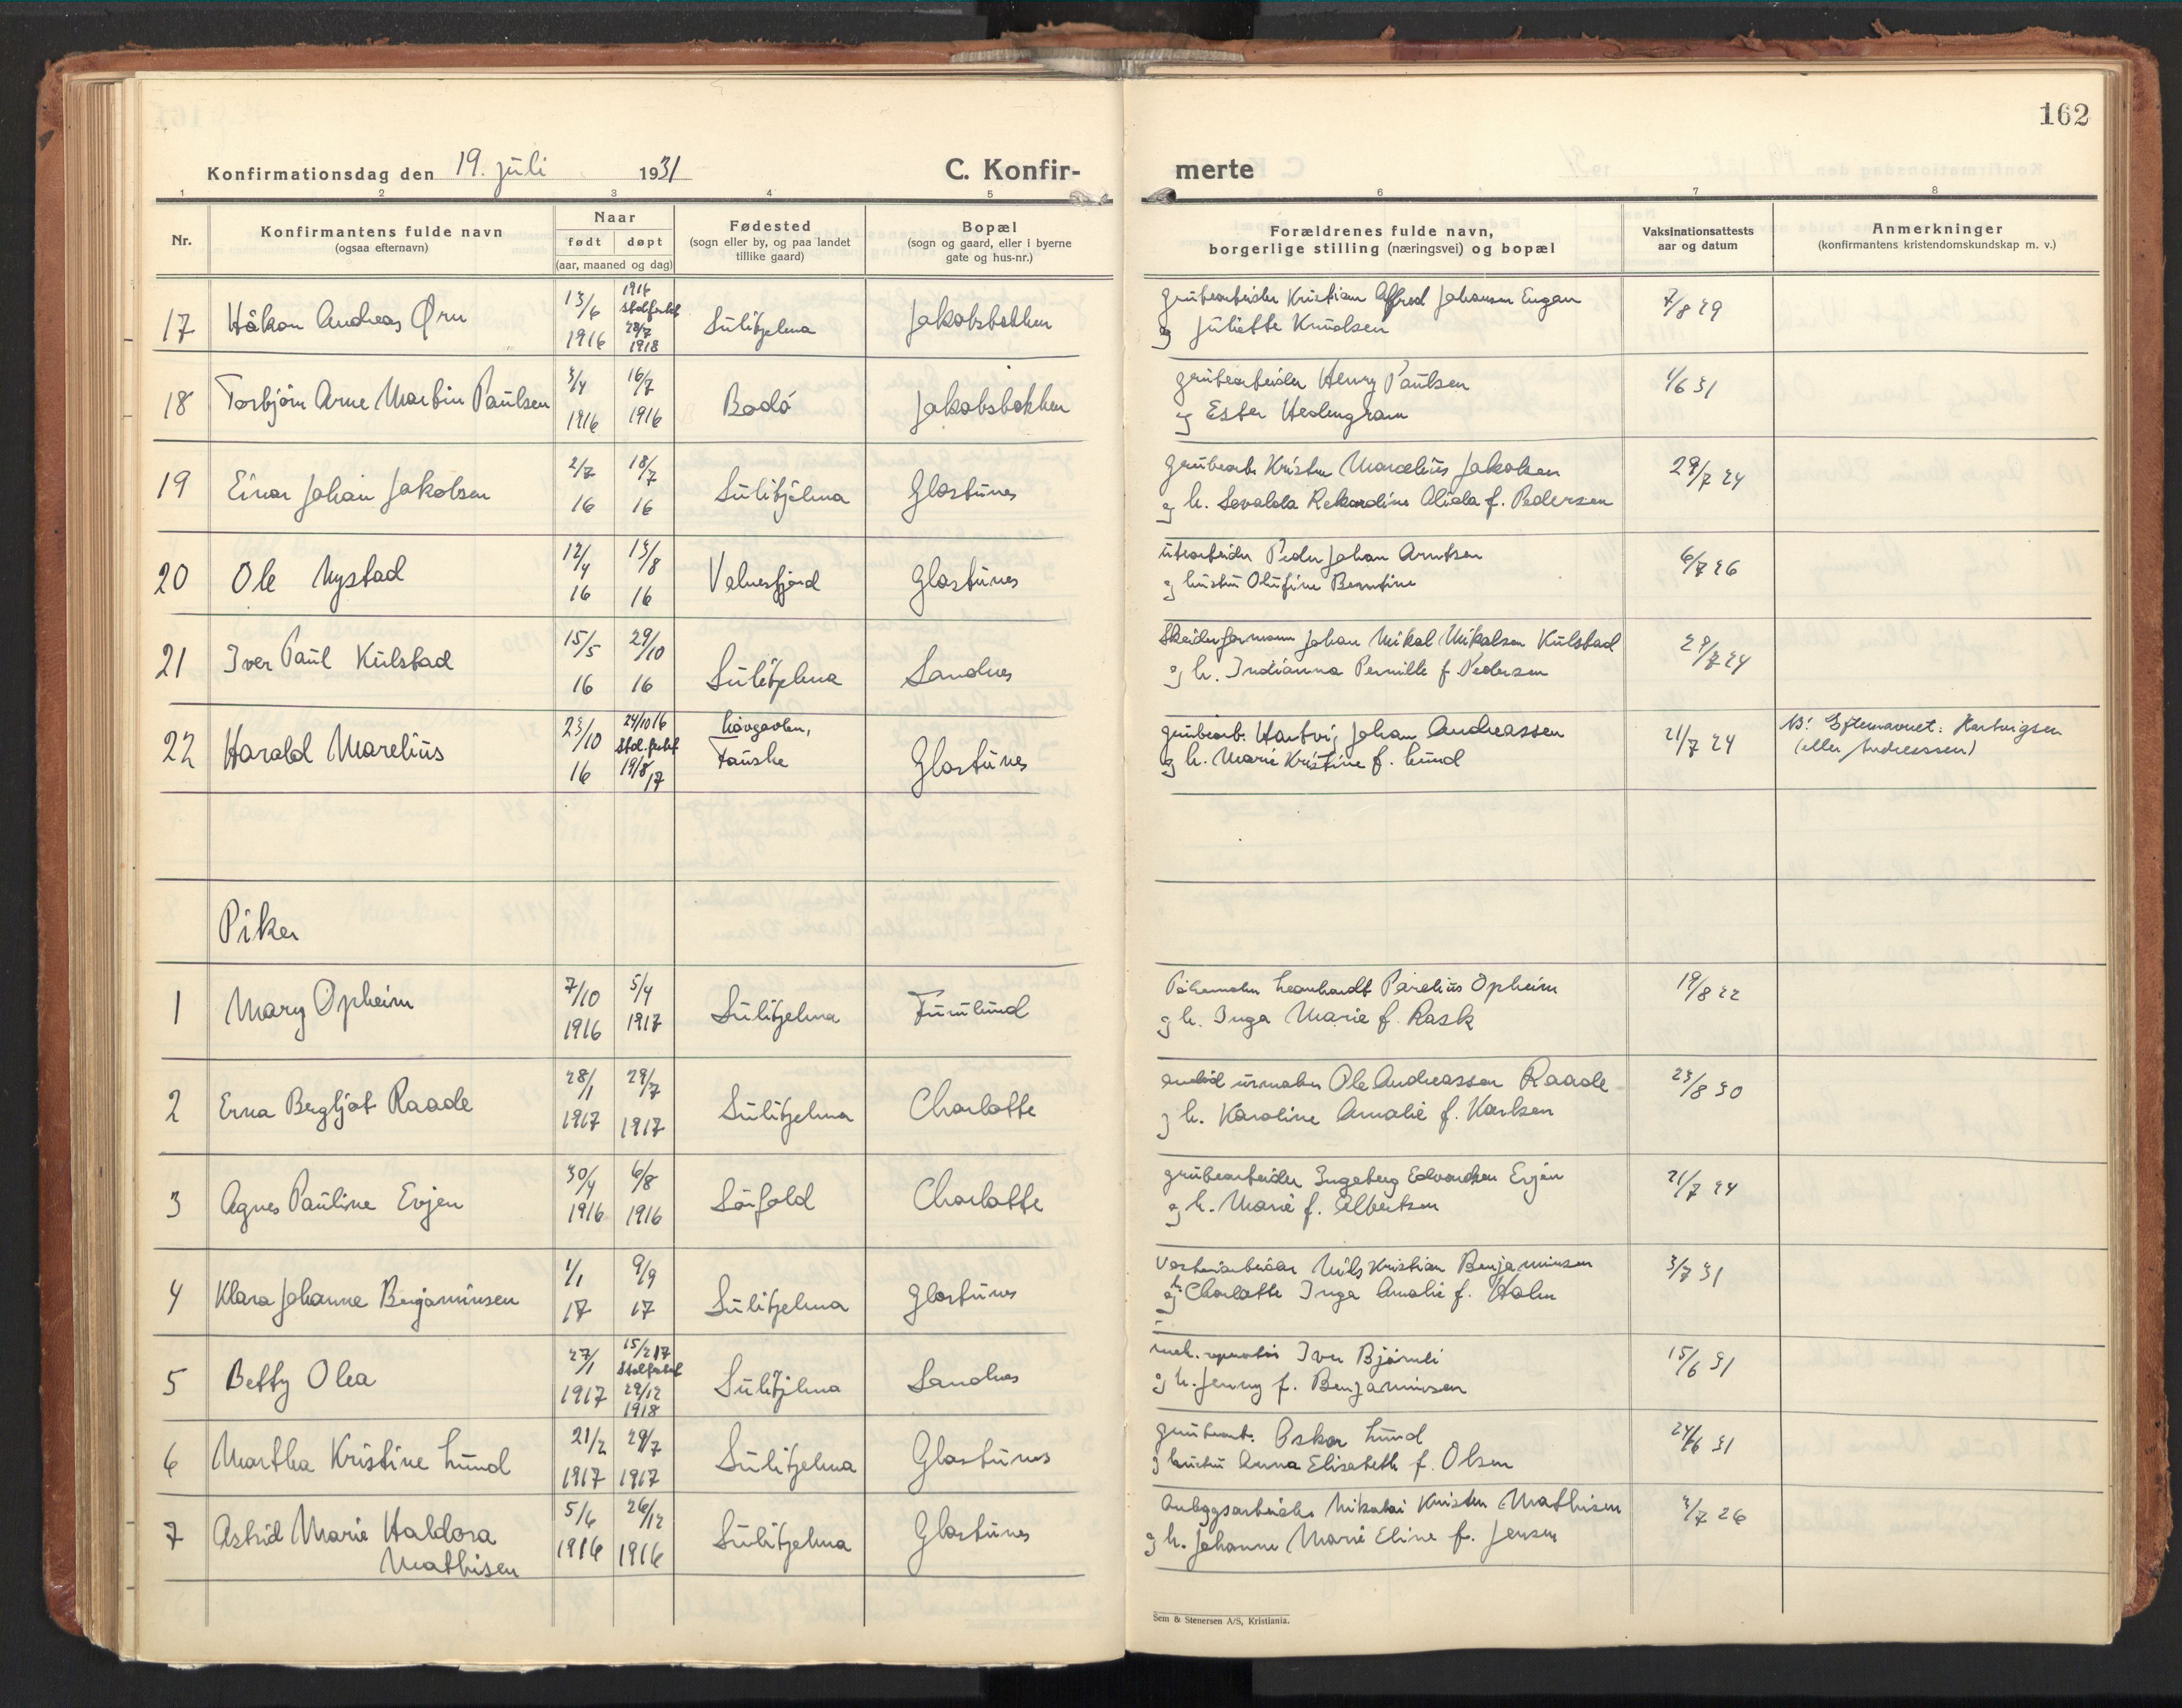 162
Konfirmationsdag den 19. juli 1931
C. Konfir-
merte
1 2 3 4 5 6 7 8
Nr.
Konfirmantens fulde navn
(ogsaa efternavn)
Naar
født døpt
(aar, maaned og dag)
Fødested
(sogn eller by, og paa landet
tillike gaard)
Bopæl
(sogn og gaard, eller i byerne
gate og hus-nr.)
Forældrenes fulde navn,
borgerlige stilling (næringsvei) og bopæl
Vaksinationsattests
aar og datum
Anmerkninger
(konfirmantens kristendomskundskap m. v.)
17 Håkon Andreas Ørn 13/6 1916 1916 Stadfestet 28/7 1918 Sulitjelma Jakobsbakken
grubearbeider Kristian Alfred Johansen Engan
og Juliette Knudsen
7/8 29
18 Torbjörn Arne Martin Paulsen 3/4 1916 16/7 1916 Bodö Jakobsbakken
grubearbeider Henry Paulsen
og Ester Hedengram
1/6 31
19 Einar Johan Jakobsen 2/7 16 18/7 16 Sulitjelma Glastunes
grubearb. Kristen Marcelius Jakobsen
og h. Sevalda Rekardine Alida f. Pedersen
29/7 24
20 Ole Nystad 12/4 16 13/8 16 Valnesfjord Glastunes
utearbeider Peder Johan Arntsen
og hustru Olufine Berntine
6/7 26
21 Iver Paul Kulstad 15/5 16 29/10 16 Sulitjelma Sandnes
Skeiderformann Johan Mikal Mikalsen Kulstad
og h. Indianna Pernille f. Pedersen
29/7 24
22 Harald Marelius 23/10 16 24/10 16 Stad.festet 19/8 17 Lövgavlen, Fauske Glastunes
grubearb. Hartvig Johan Andreassen
og h. Marie Kristine f. Lund
21/7 24
NB! Efternavnet: Hartvigsen
(eller Andreassen)
Piker
1 Mary Opheim 7/10 1916 5/4 1917 Sulitjelma Furulund
Leonhardt Parelius Opheim
og h. Inga Marie f. Rask
19/8 22
2 Erna Bergljot Raade 28/1 1917 29/7 1917 Sulitjelma Charlotte
urmaker Ole Andreassen Raade
og h. Karoline Amalie f. Karlsen
23/8 30
3 Agnes Pauline Evjen 30/4 1916 6/8 1916 Sörfold Charlotte
grubearbeider Ingeberg Edvardsen Evjen
og h. Marie f. Albertsen
21/7 24
4 Klara Johanne Benjaminsen 1/1 17 9/9 17 Sulitjelma Glastunes
Verkstedarbeider Nils Kristian Benjaminsen
og h. Charlotte Inga Amalie f. Holm
3/7 31
5 Betty Olea 27/1 1917 15/2 17 Stadfestet 29/12 1918 Sulitjelma Sandnes
mek. reparatör Iver Björnli
og h. Jenny f. Benjaminsen
15/6 31
6 Martha Kristine Lund 21/2 1917 29/7 1917 Sulitjelma Glastunes
grubearb. Oskar Lund
og hustru Anna Elisabeth f. Olsen
24/6 31
7 Astrid Marie Haldora
Mathisen 5/6 1916 26/12 1916 Sulitjelma Glastunes
Anleggsarbeider Nikolai Kristen Mathisen
og h. Johanne Marie Eline f. Jensen
3/7 26
Sem & Stenersen A/S, Kristiania.